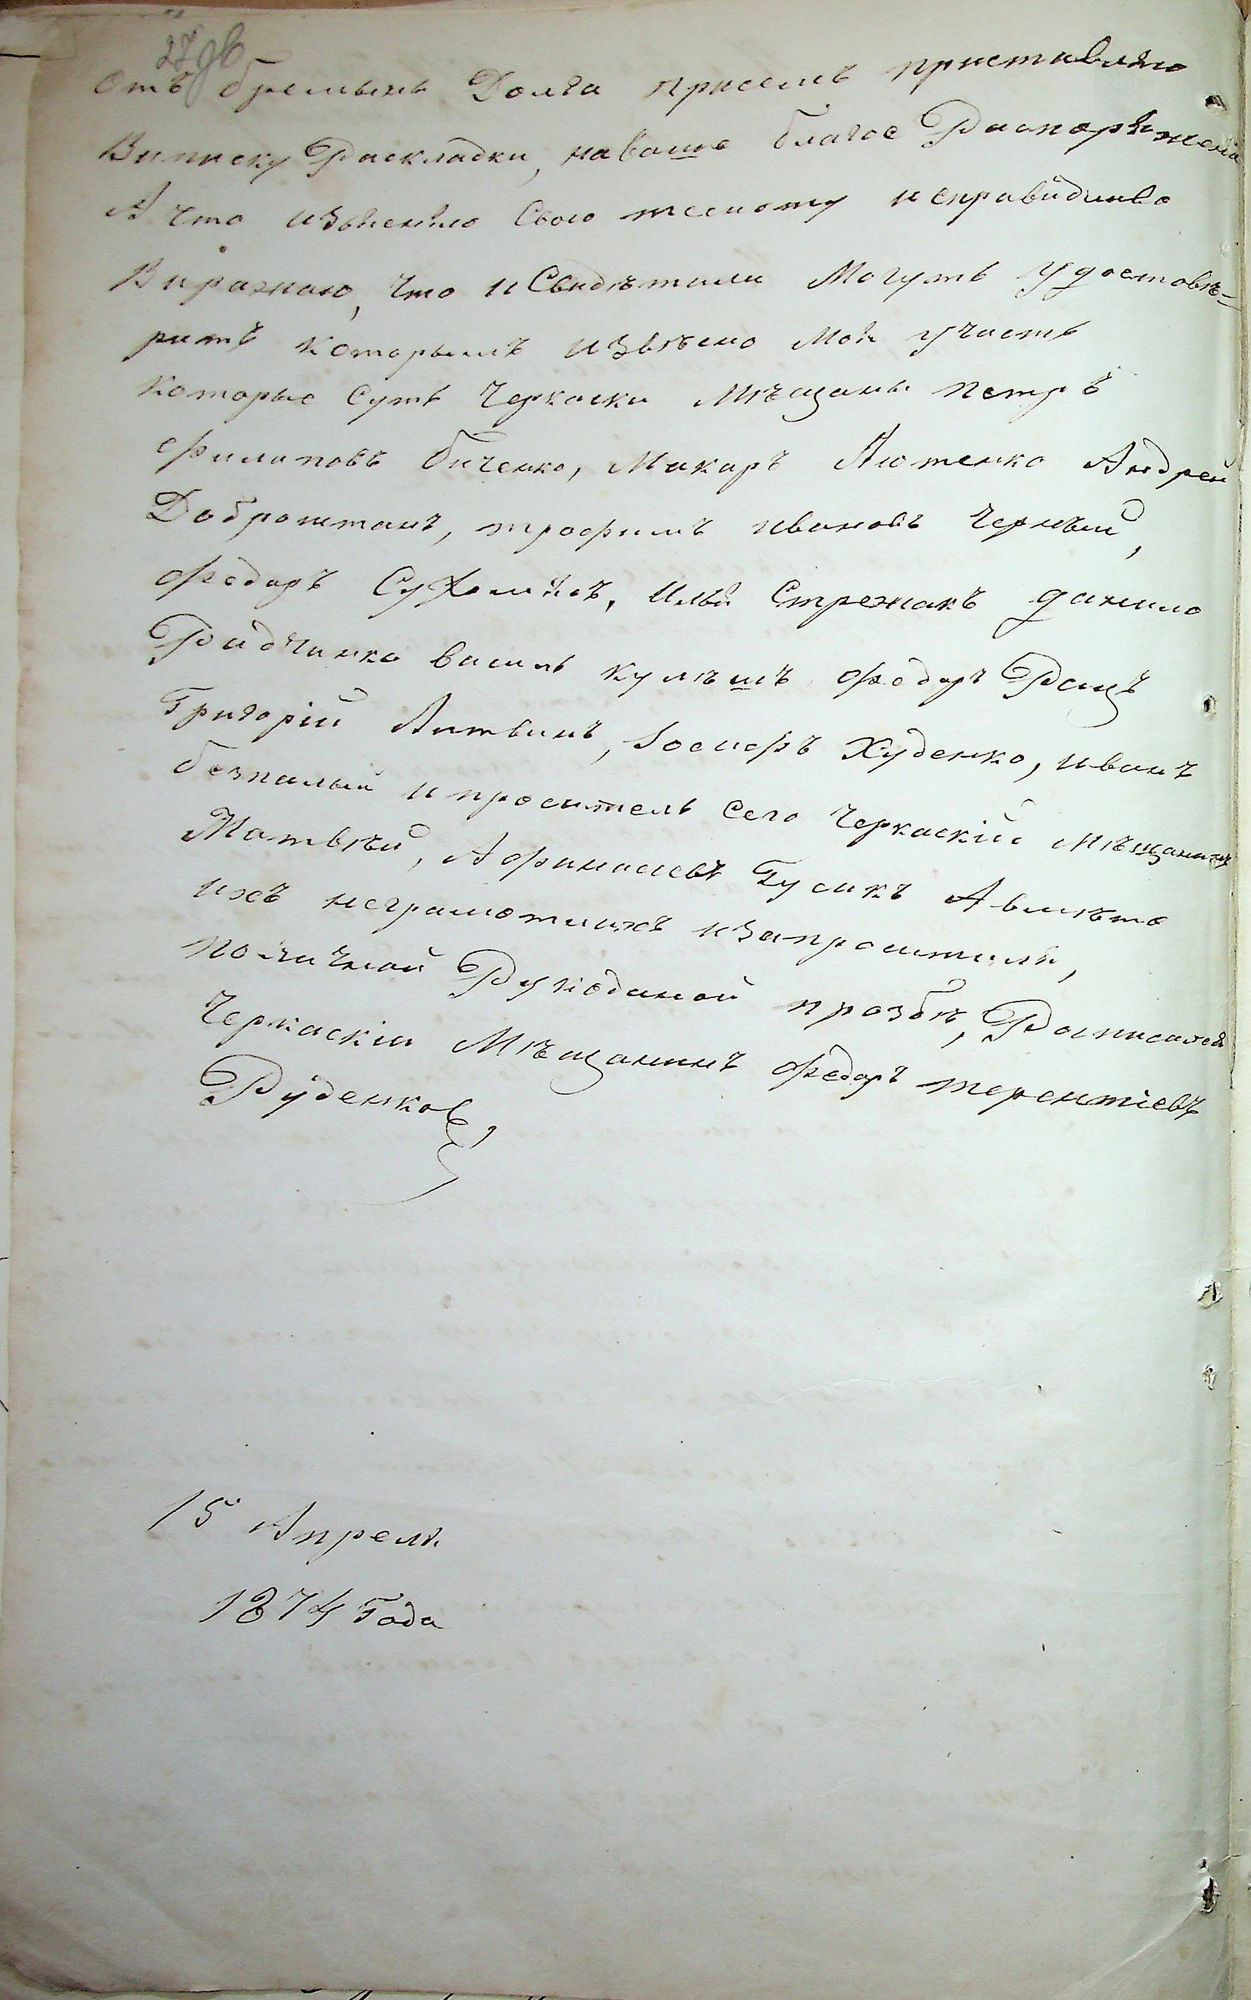 27 об
отъ бремынь Долга присемъ приставляю
Виписку Раскладки, наваше благое Распоряжения
А что изъясняю Свою тесноту исправидливо
Виражаю, что и Свидѣтили Могутъ удостовѣ-
рить которымъ извѣсно Моя участь
которые суть Черкаски Мѣщаны Петръ
Филиповъ Биченко, Макаръ Лютенко Андрей
Доброштанъ, трофимъ ивановъ Черный,
Федоръ Сухолитъ, Илья Стрежакъ данило
Радченко василь кулѣшъ Федоръ Рацъ
Григорій Литвинъ, Iосифъ Худенко, иванъ
безпалый ипроситель Сего Черкаскій Мѣщанинъ
Матвѣй, Афанасіевъ Гусакъ Авмѣсто
ихъ неграмотнихъ изапросителя,
поличной Рукоданой прозбѣ, Расписался
Черкаскій Мѣщанинъ Федоръ терентіевъ
Руденковъ,
15 Апреля
1874 Года